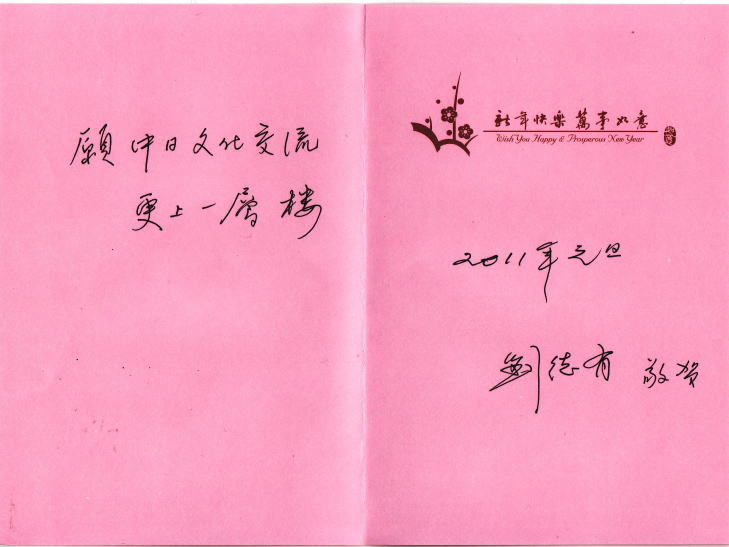 願中日文化交流
更上一層楼
新年快樂萬事如意
Wish You Happy & Prosperous New Year
2011年元旦
劉德有 敬贺